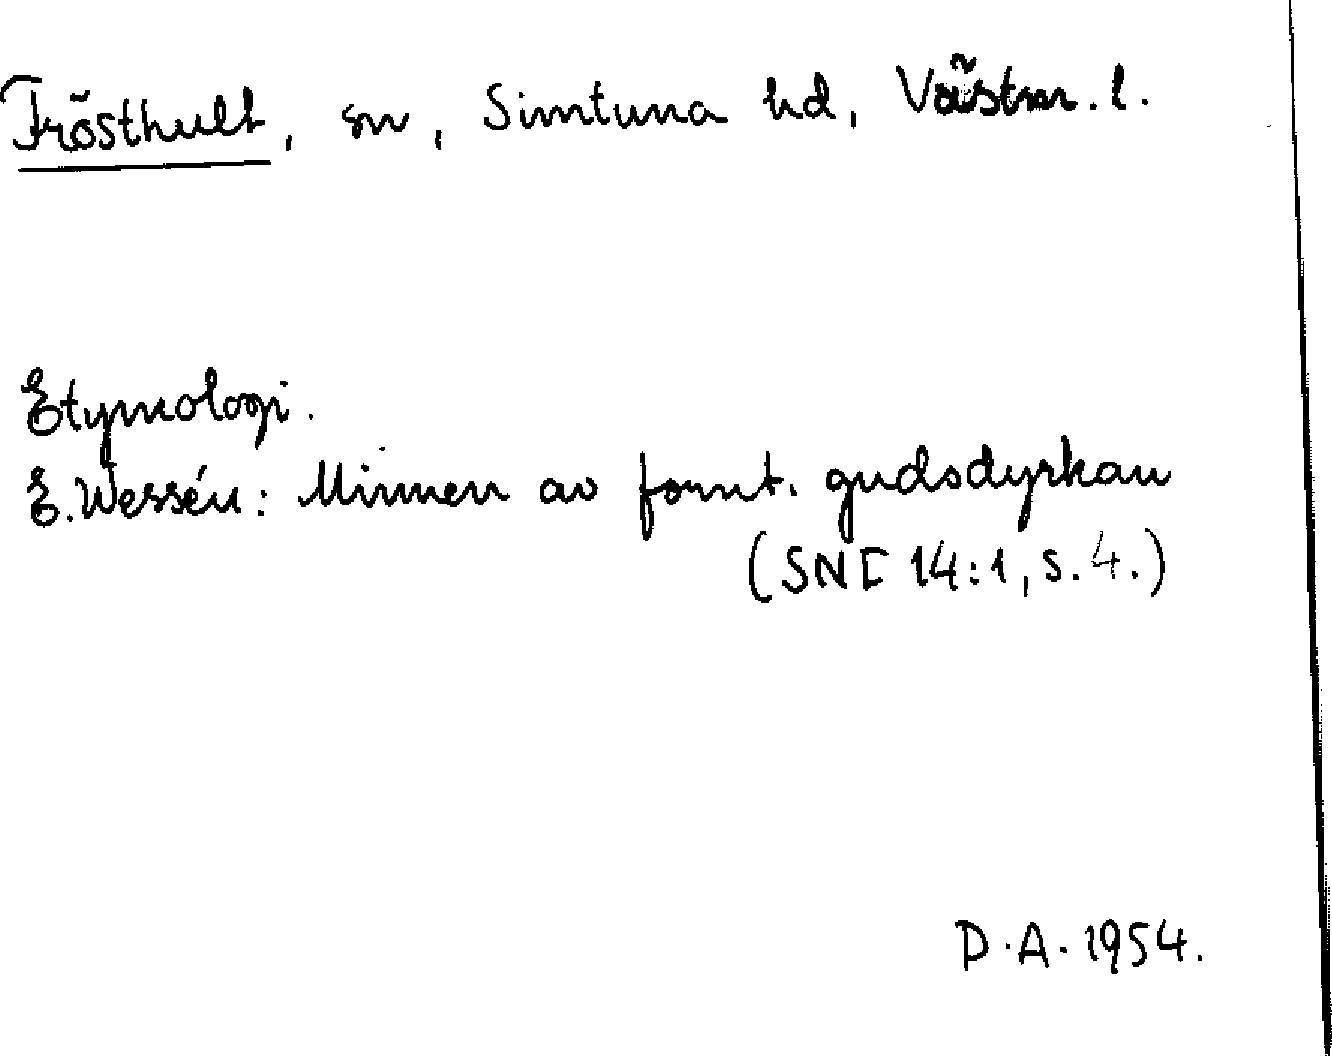 Frösthult, sn, Simtuna hd, Västm. l.
Etymologi.
E. Wessén: Minnen av fornt. gudsdyrkan
(SNF 14:1, s. 4.)
D.A. 1954.